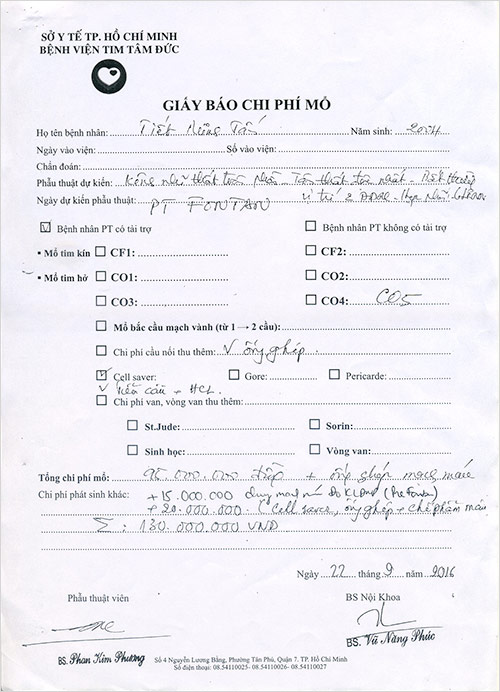 SỞ Y TẾ TP. HỒ CHÍ MINH
BỆNH VIỆN TIM TÂM ĐỨC
GIẤY BÁO CHI PHÍ MỔ
Họ tên bệnh nhân: Tiết Năm sinh: 2004
Ngày vào viện: Số vào viện:
Chẩn đoán:
Phẫu thuật dự kiến: Không nhĩ thất thất
Ngày dự kiến phẫu thuật: PT FONTAN vị trí 2
☑ Bệnh nhân PT có tài trợ ☐ Bệnh nhân PT không có tài trợ
▪ Mổ tim kín ☐ CF1: ☐ CF2:
▪ Mổ tim hở ☐ CO1: ☐ CO2:
☐ CO3: ☐ CO4: CO5
☐ Mổ bắc cầu mạch vành (từ 1 → 2 cầu):
☐ Chi phí cầu nối thu thêm: ✓ ống ghép
☑ Cell saver: ☐ Gore: ☐ Pericarde:
✓ + HCL
☐ Chi phí van, vòng van thu thêm:
☐ St.Jude: ☐ Sorin:
☐ Sinh học: ☐ Vòng van:
Tổng chi phí mổ: 95.000.000 + ống ghép mạch máu
Chi phí phát sinh khác: +15.000.000
+20.000.000 (Cell saver, ống ghép + chế phẩm máu
Σ : 130.000.000 VND
Ngày 22 tháng 9 năm 2016
Phẫu thuật viên BS Nội Khoa
BS. Phan Kim Phương BS. Vũ Năng Phúc
Số 4 Nguyễn Lương Bằng, Phường Tân Phú, Quận 7. TP. Hồ Chí Minh
Số điện thoại: 08.54110025 - 08.54110026 - 08.54110027